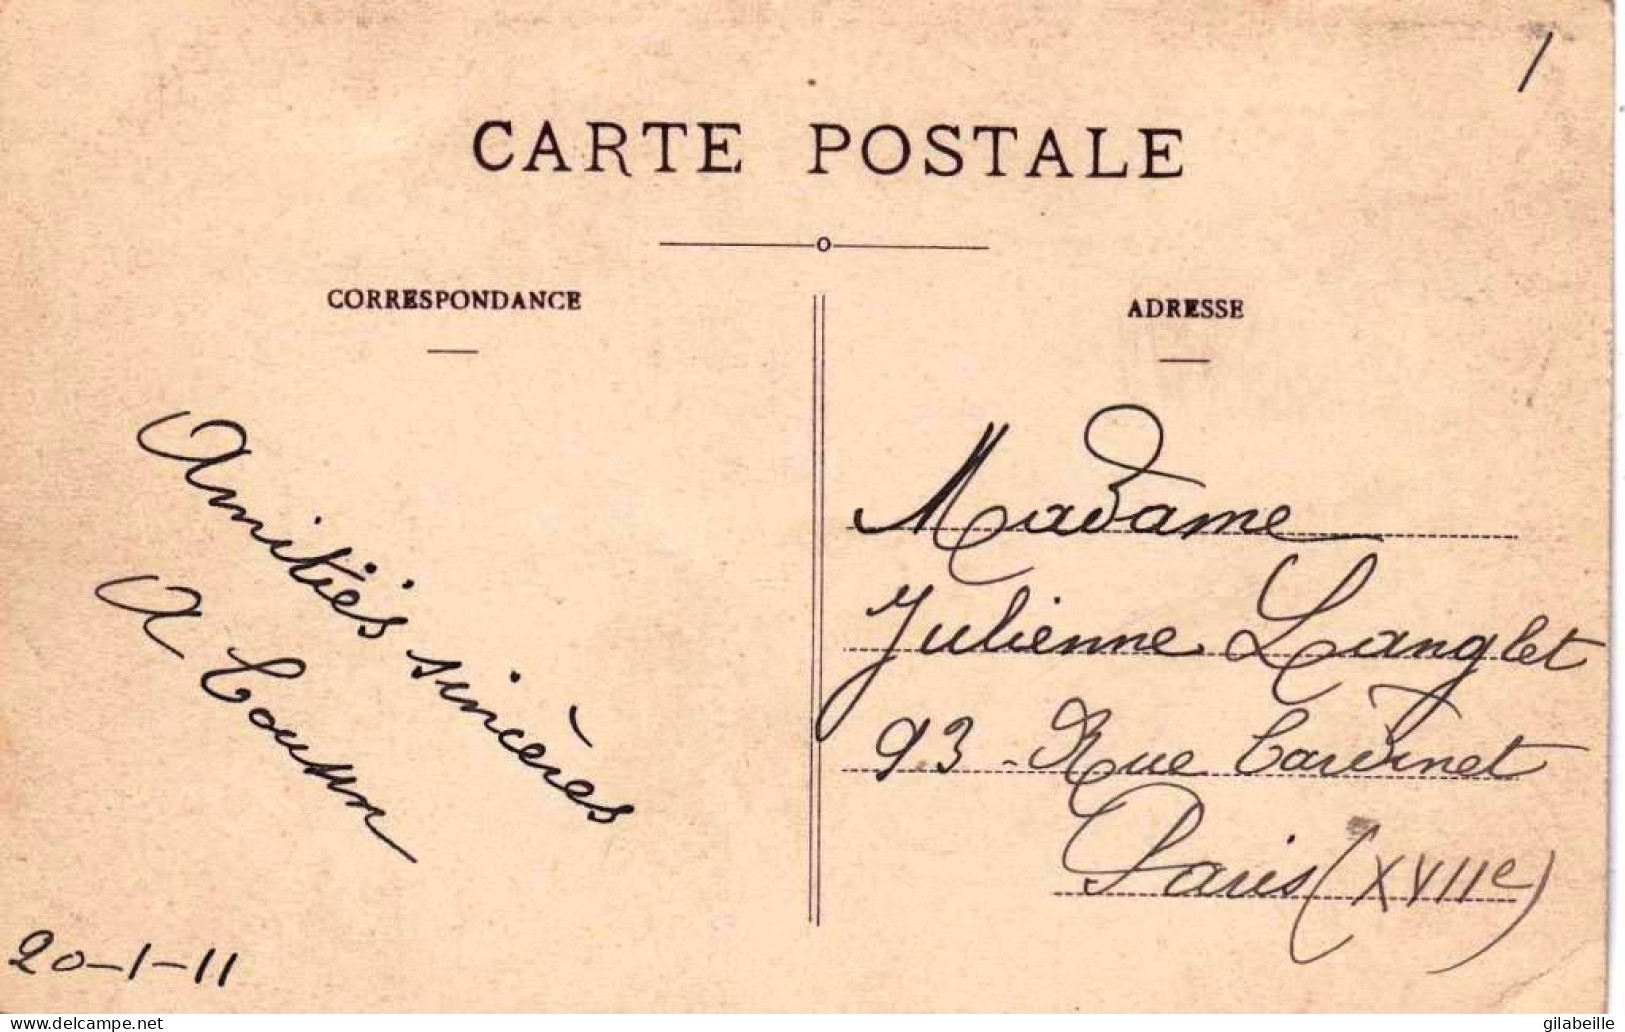 1
CARTE POSTALE
CORRESPONDANCE
ADRESSE
Amitiés sincères
A
20-1-11
Madame
Julienne Langlet
93 - Rue Cardinet
Paris (XVIIe)
www.delcampe.net
gilabeille